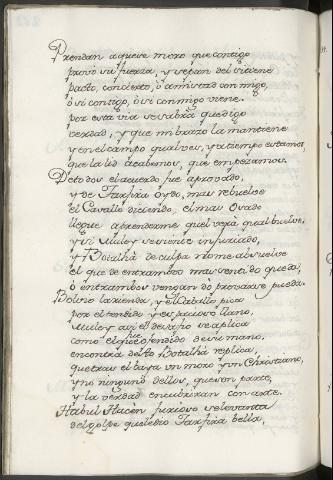 Prendan a queste moro que contigo
provò su fuerza, y sepan del si tiene
pacto, concierto, ò amistad conmigo,
ò si contigo, ò si conmigo viene.
por esta via se sabra que digo
verdad, y que mi brazo la mantiene
y en el campo qual ves, y a tiempo estamos
que la lid acabemos, que empezamos.
De todos el acuerdo fue aprovado,
y de Tarfira oydo, mas rebuelve
el Cavallo diciendo, el mas osado
llegue a prenderme que verà qual buelve,
y si Muley se siente injuriado,
y Botalhà de culpa no me absuelve
el que de entrambos mas sentido queda,
ò entrambos vengan do provarse pueda.
Bolviò la rienda, y el Caballo pica
por el tendido y espacioso llano,
Muley assi el desvaño se aplica
como el que fue ofendido de su mano.
encontra desto Botalhà replica,
que trau el baya un moro y un Christiano,
y no ninguno dellos, que son parte,
y la verdad encubriran con arte.
Habul Hacèn furioso se levanta
del golpe que le dio Tarfira bella,